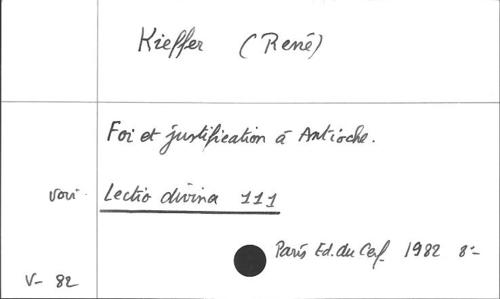 Kieffer (René)
Foi et justification à Antioche.
voir Lectio divina 111
Paris Ed. du Cerf 1982 8°
V- 82